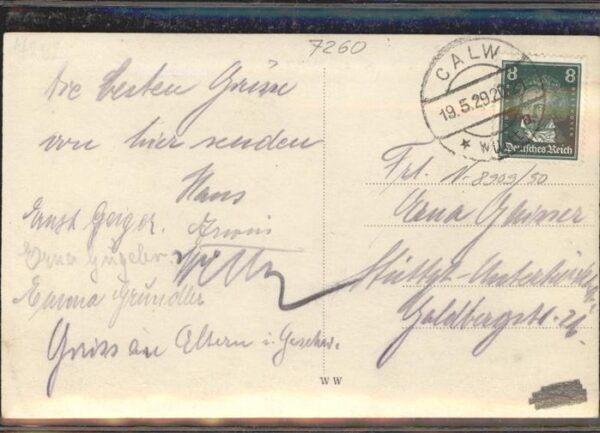 7260
Die besten Grüsse
von hier senden
Hans
Ernst Geiger. Erwin
Erna
Emma Gründler
Gruss an Eltern u. Geschw.
W W
CALW
19.5.29.20
8 8
Deutsches Reich
Frl. N. 8909/50
Erna Gaisser
Stuttgt.-Untertürkh.
Goldbergstr. 21.